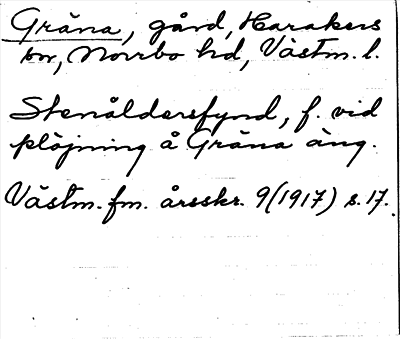 Gräna, gård, Harakers
sn, Norrbo hd, Västm. l.
Stenåldersfynd, f. vid
plöjning å Gräna äng.
Västm. fm. årsskr. 9 (1917) s. 17.